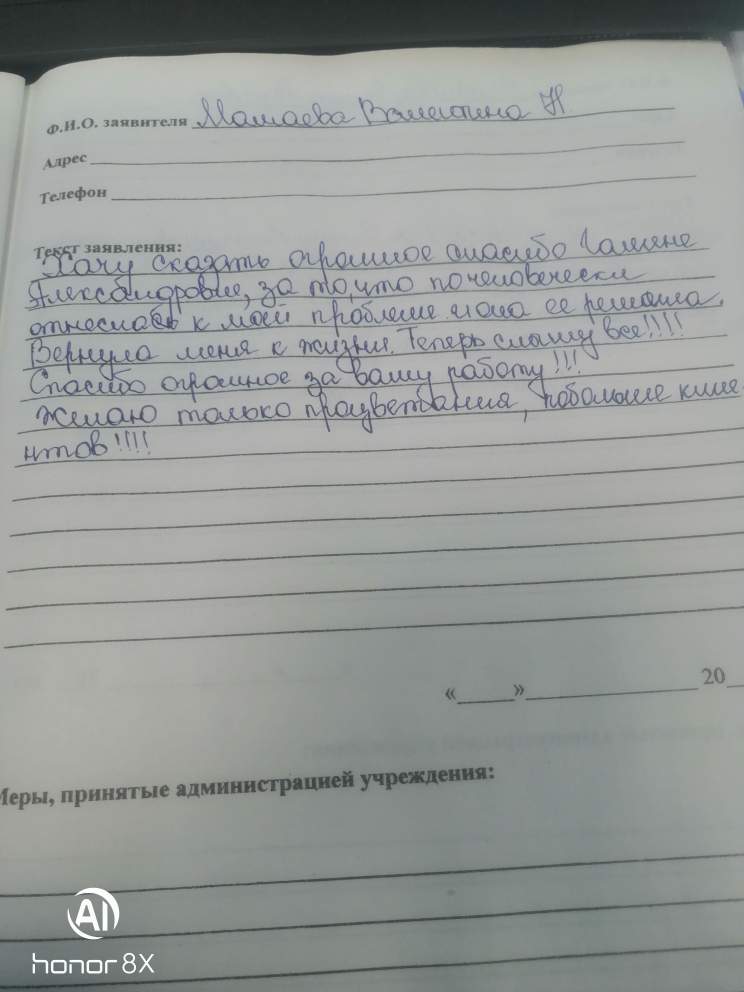 Ф.И.О. заявителя Мамаева Валентина Н
Адрес
Телефон
Текст заявления:
Хочу сказать огромное спасибо Галине
Александровне, за то, что по человечески
отнеслась к моей проблеме и она ее решила.
Вернула меня к жизни. Теперь слышу все!!!!
Спасибо огромное за вашу работу!!!
Желаю только процветания, побольше клие
нтов!!!!
«   »   20
Меры, принятые администрацией учреждения:
AI
honor 8X